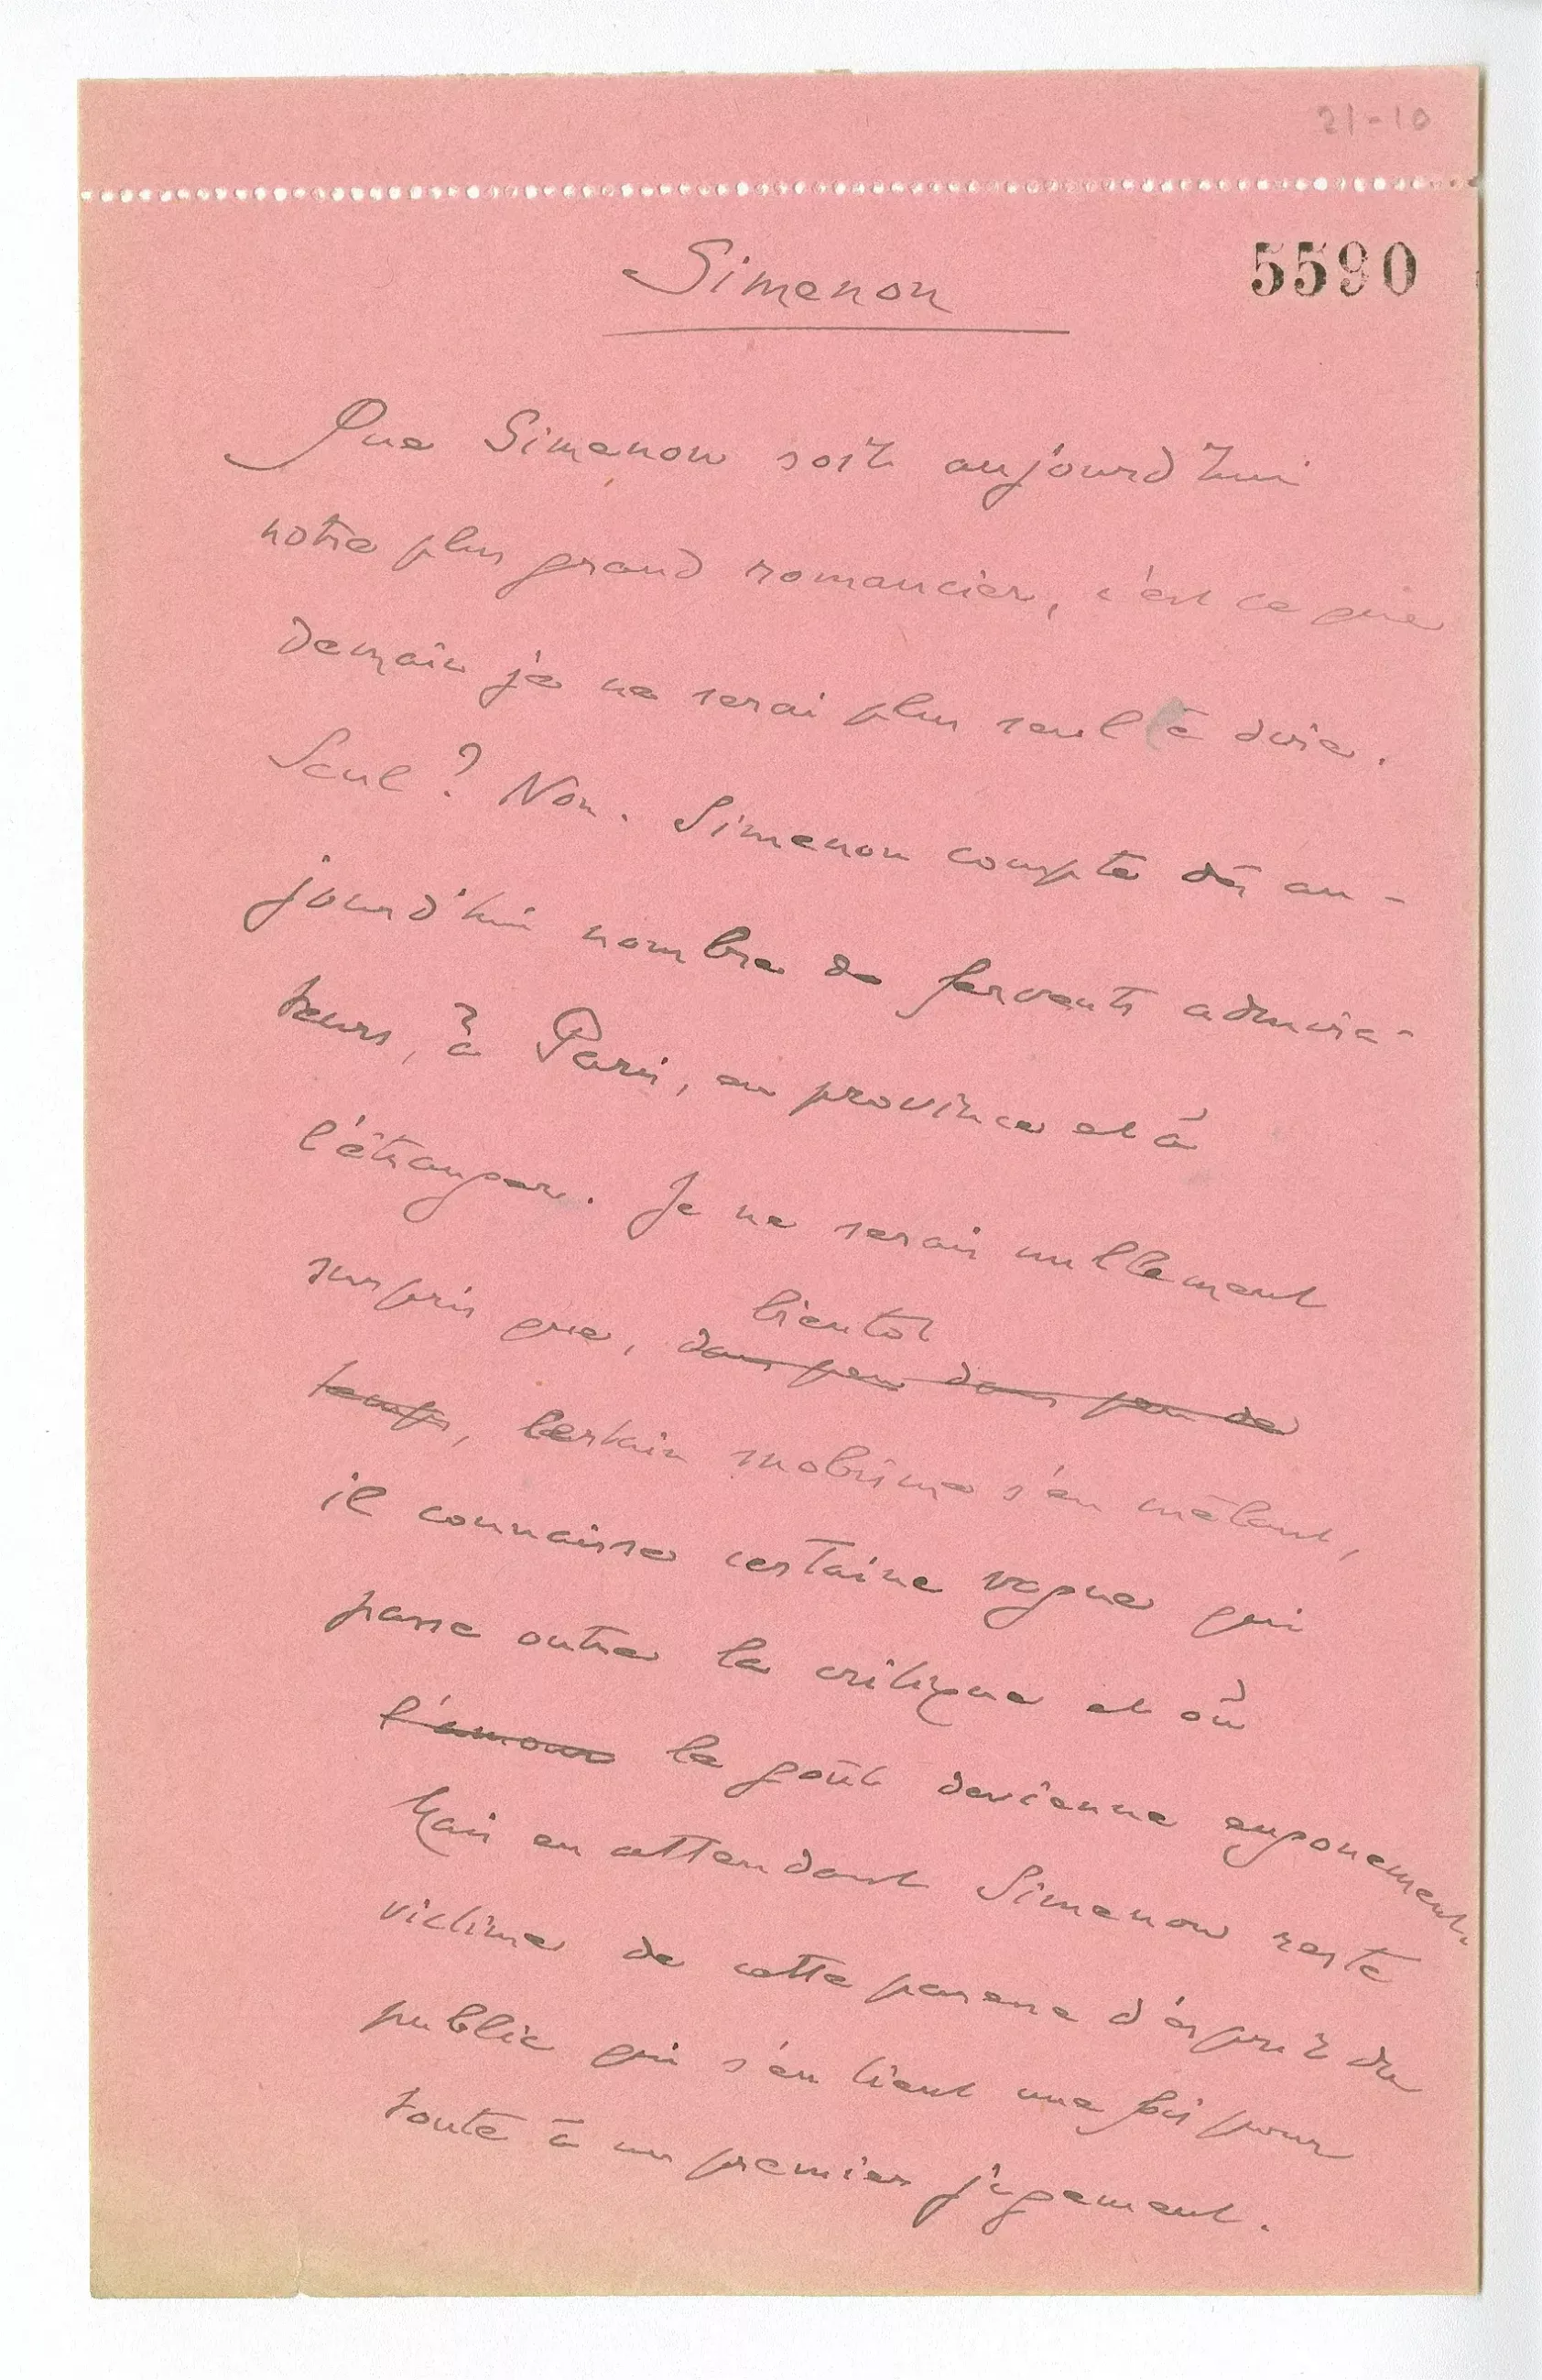 21-10
5590
Simenon
Que Simenon soit aujourd'hui
notre plus grand romancier, c'est ce que
demain je ne serai plus seul à dire.
Seul ? Non. Simenon compte dès au-
jourd'hui nombre de fervents admira-
teurs, à Paris, en province et à
l'étranger. Je ne serais nullement
surpris que, dans peu dans peu de
bientôt
temps, certain snobisme s'en mêlant,
il connaisse certaine vogue qui
passe outre la critique et où
l'amour le goût devienne engouement.
Mais en attendant Simenon reste
victime de cette paresse d'esprit du
public qui s'en tient une fois pour
toute à un premier jugement.